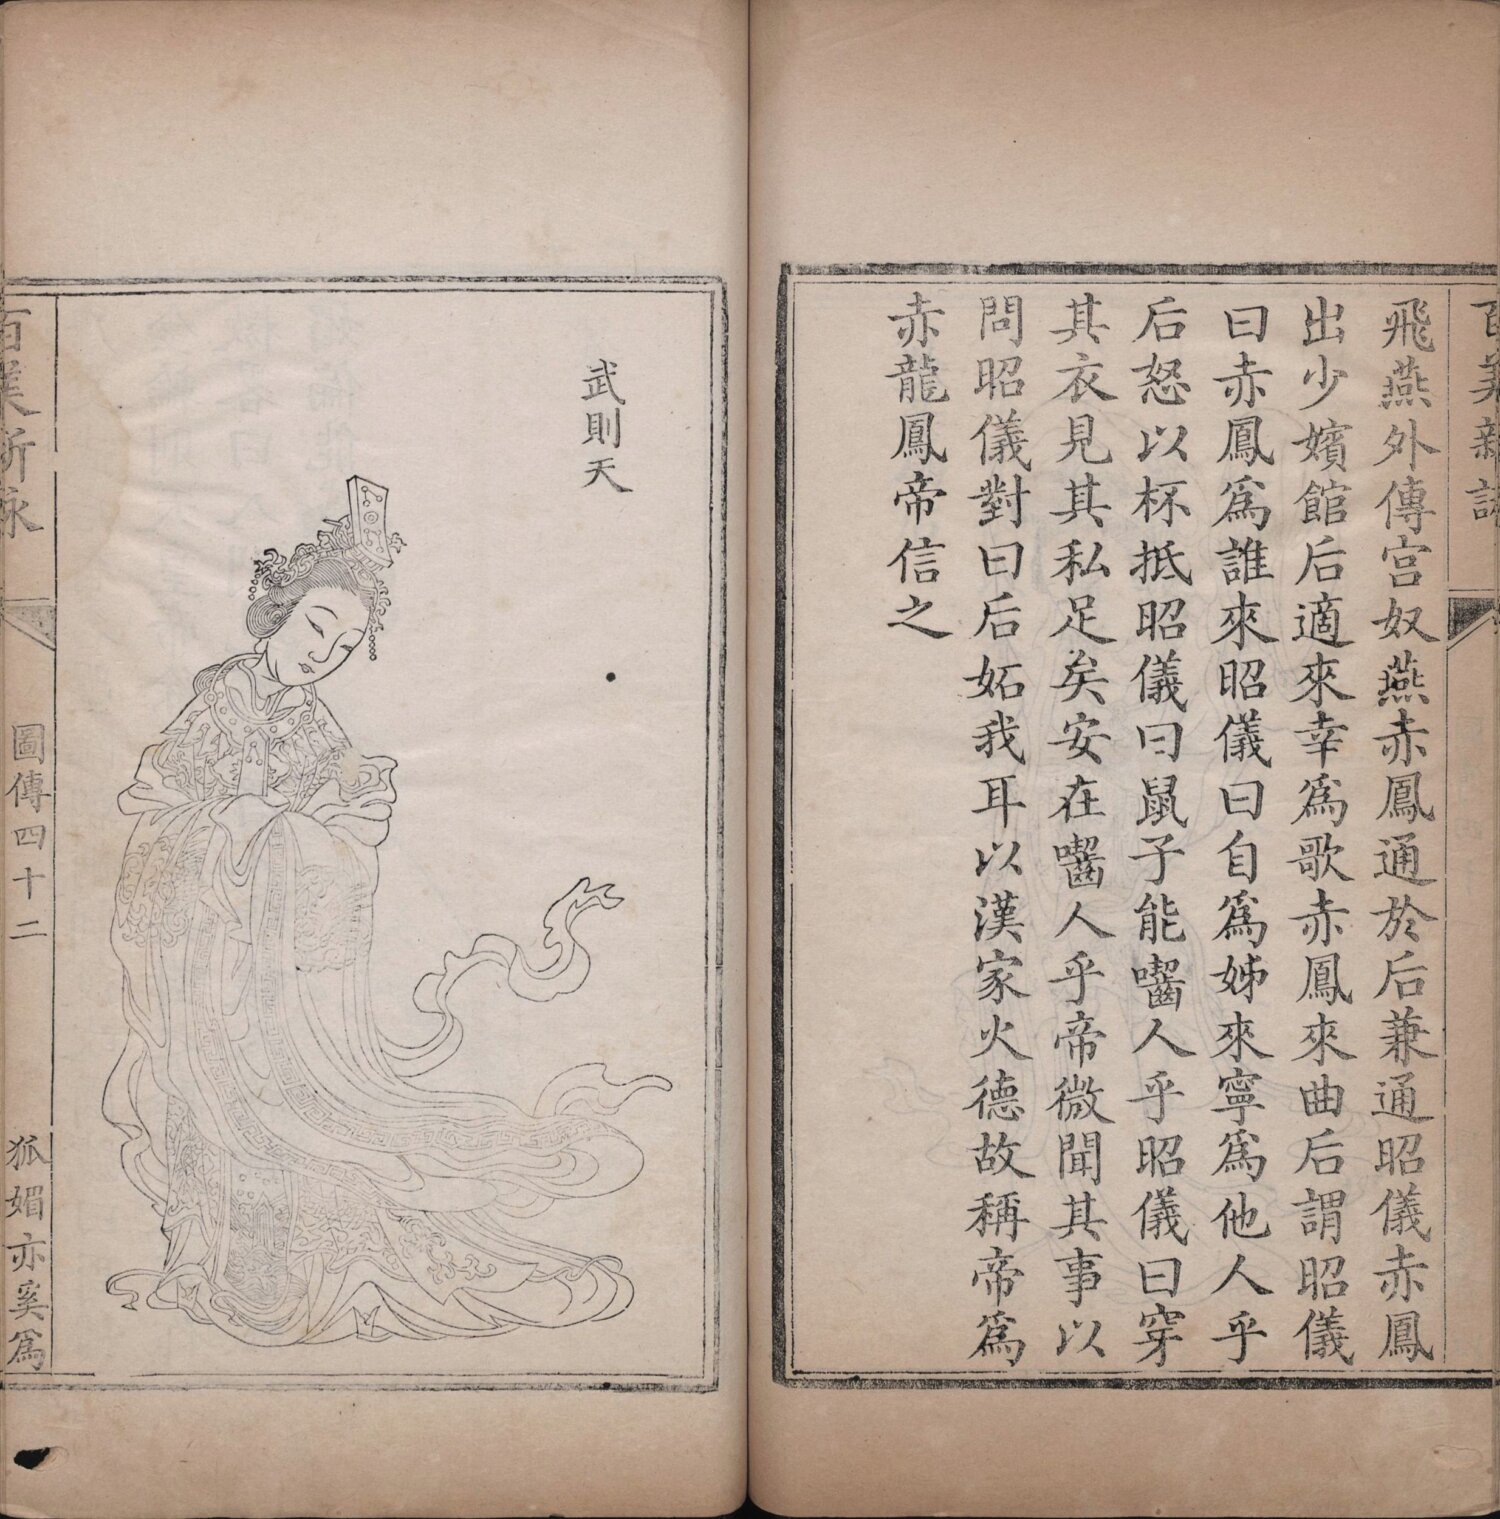 飛燕外傳宮奴燕赤鳳通於后兼通昭儀赤鳳
出少嬪館后適來幸爲歌赤鳳來曲后謂昭儀
曰赤鳳爲誰來昭儀曰自爲姊來寧爲他人乎
后怒以杯抵昭儀曰鼠子能囓人乎昭儀曰穿
其衣見其私足矣安在囓人乎帝微聞其事以
問昭儀對曰后妬我耳以漢家火德故稱帝爲
赤龍鳳帝信之
武則天
百美新詠
圖傳四十二
狐媚亦奚爲